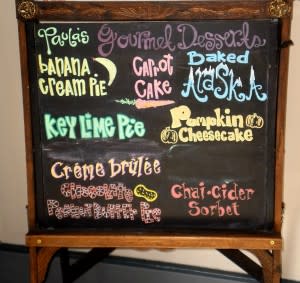 Paula's Gourmet Desserts
Banana
Cream Pie
Carrot
Cake
Baked
Alaska
Key Lime Pie
Pumpkin
Cheesecake
Crème Brûlée
Chocolate
Peanut Butter Pie
Chai-Cider
Sorbet